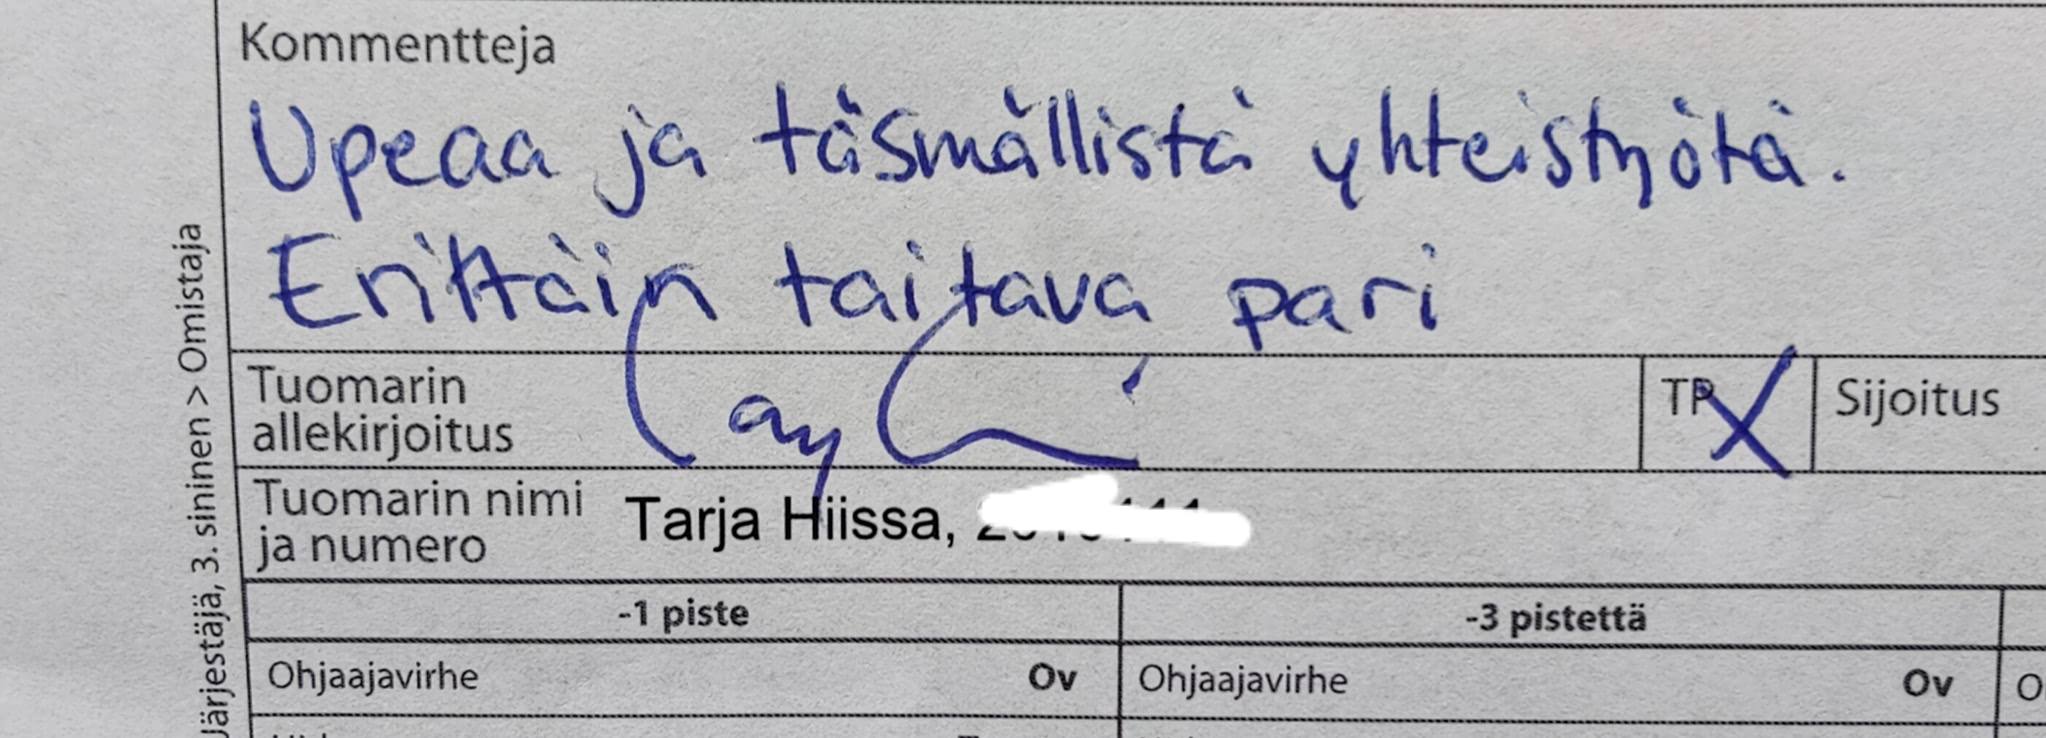 Kommentteja
Upeaa ja täsmällistä yhteistyötä.
Erittäin taitava pari
Tuomarin
allekirjoitus
TP X
Sijoitus
Tuomarin nimi
ja numero
Tarja Hiissa,
-1 piste
-3 pistettä
Ohjaajavirhe Ov
Ohjaajavirhe Ov
O
Järjestäjä, 3. sininen > Omistaja